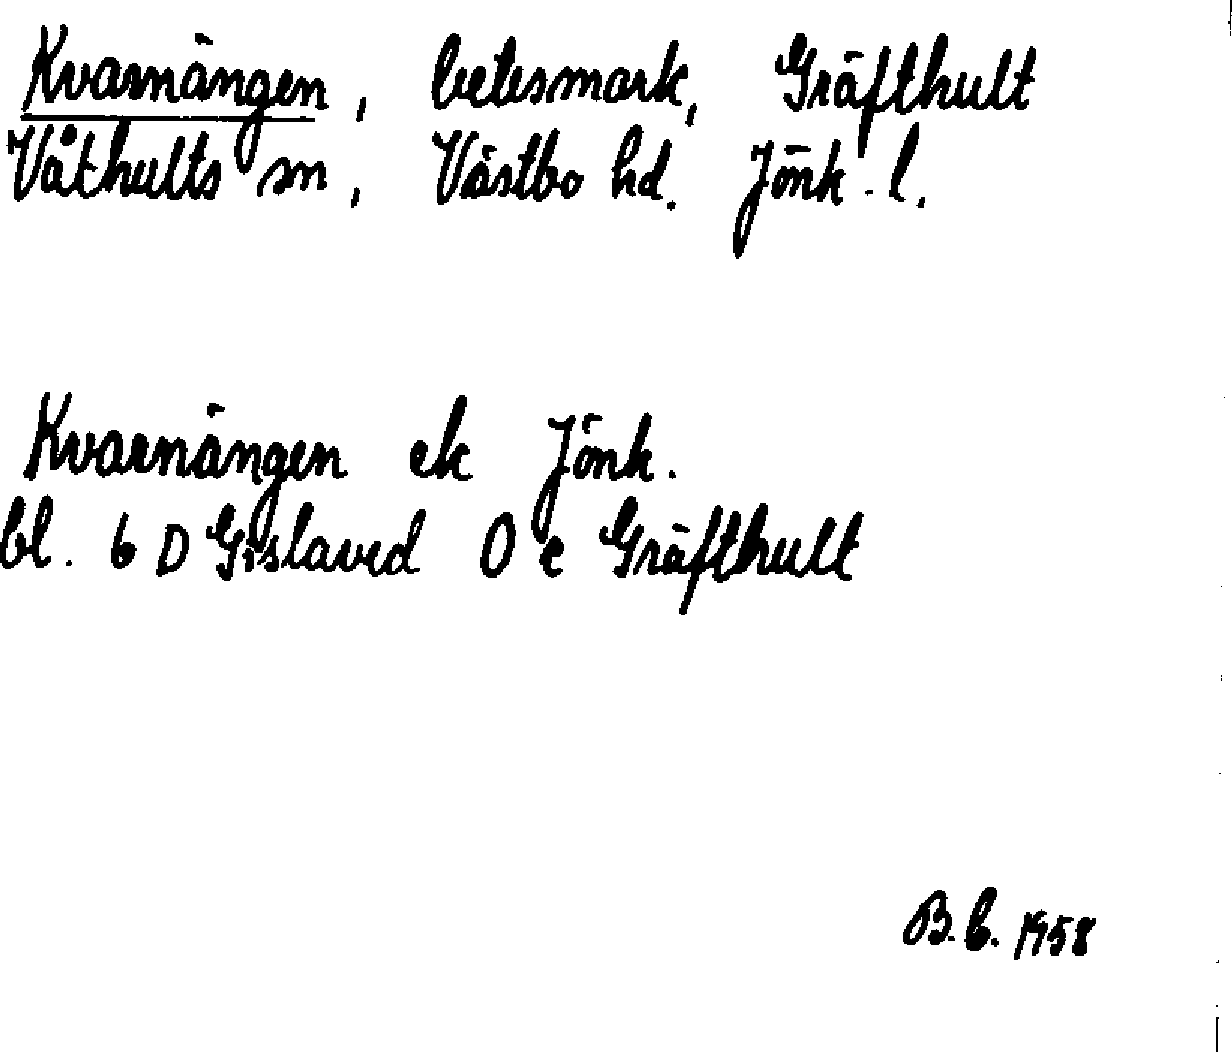 Kvarnängen, betesmark, Gräfthult
Våthults sn, Västbo hd. Jönk. l.
Kvarnängen ek Jönk.
bl. 6 D Gislaved 0 e Gräfthult
B.b. 1958